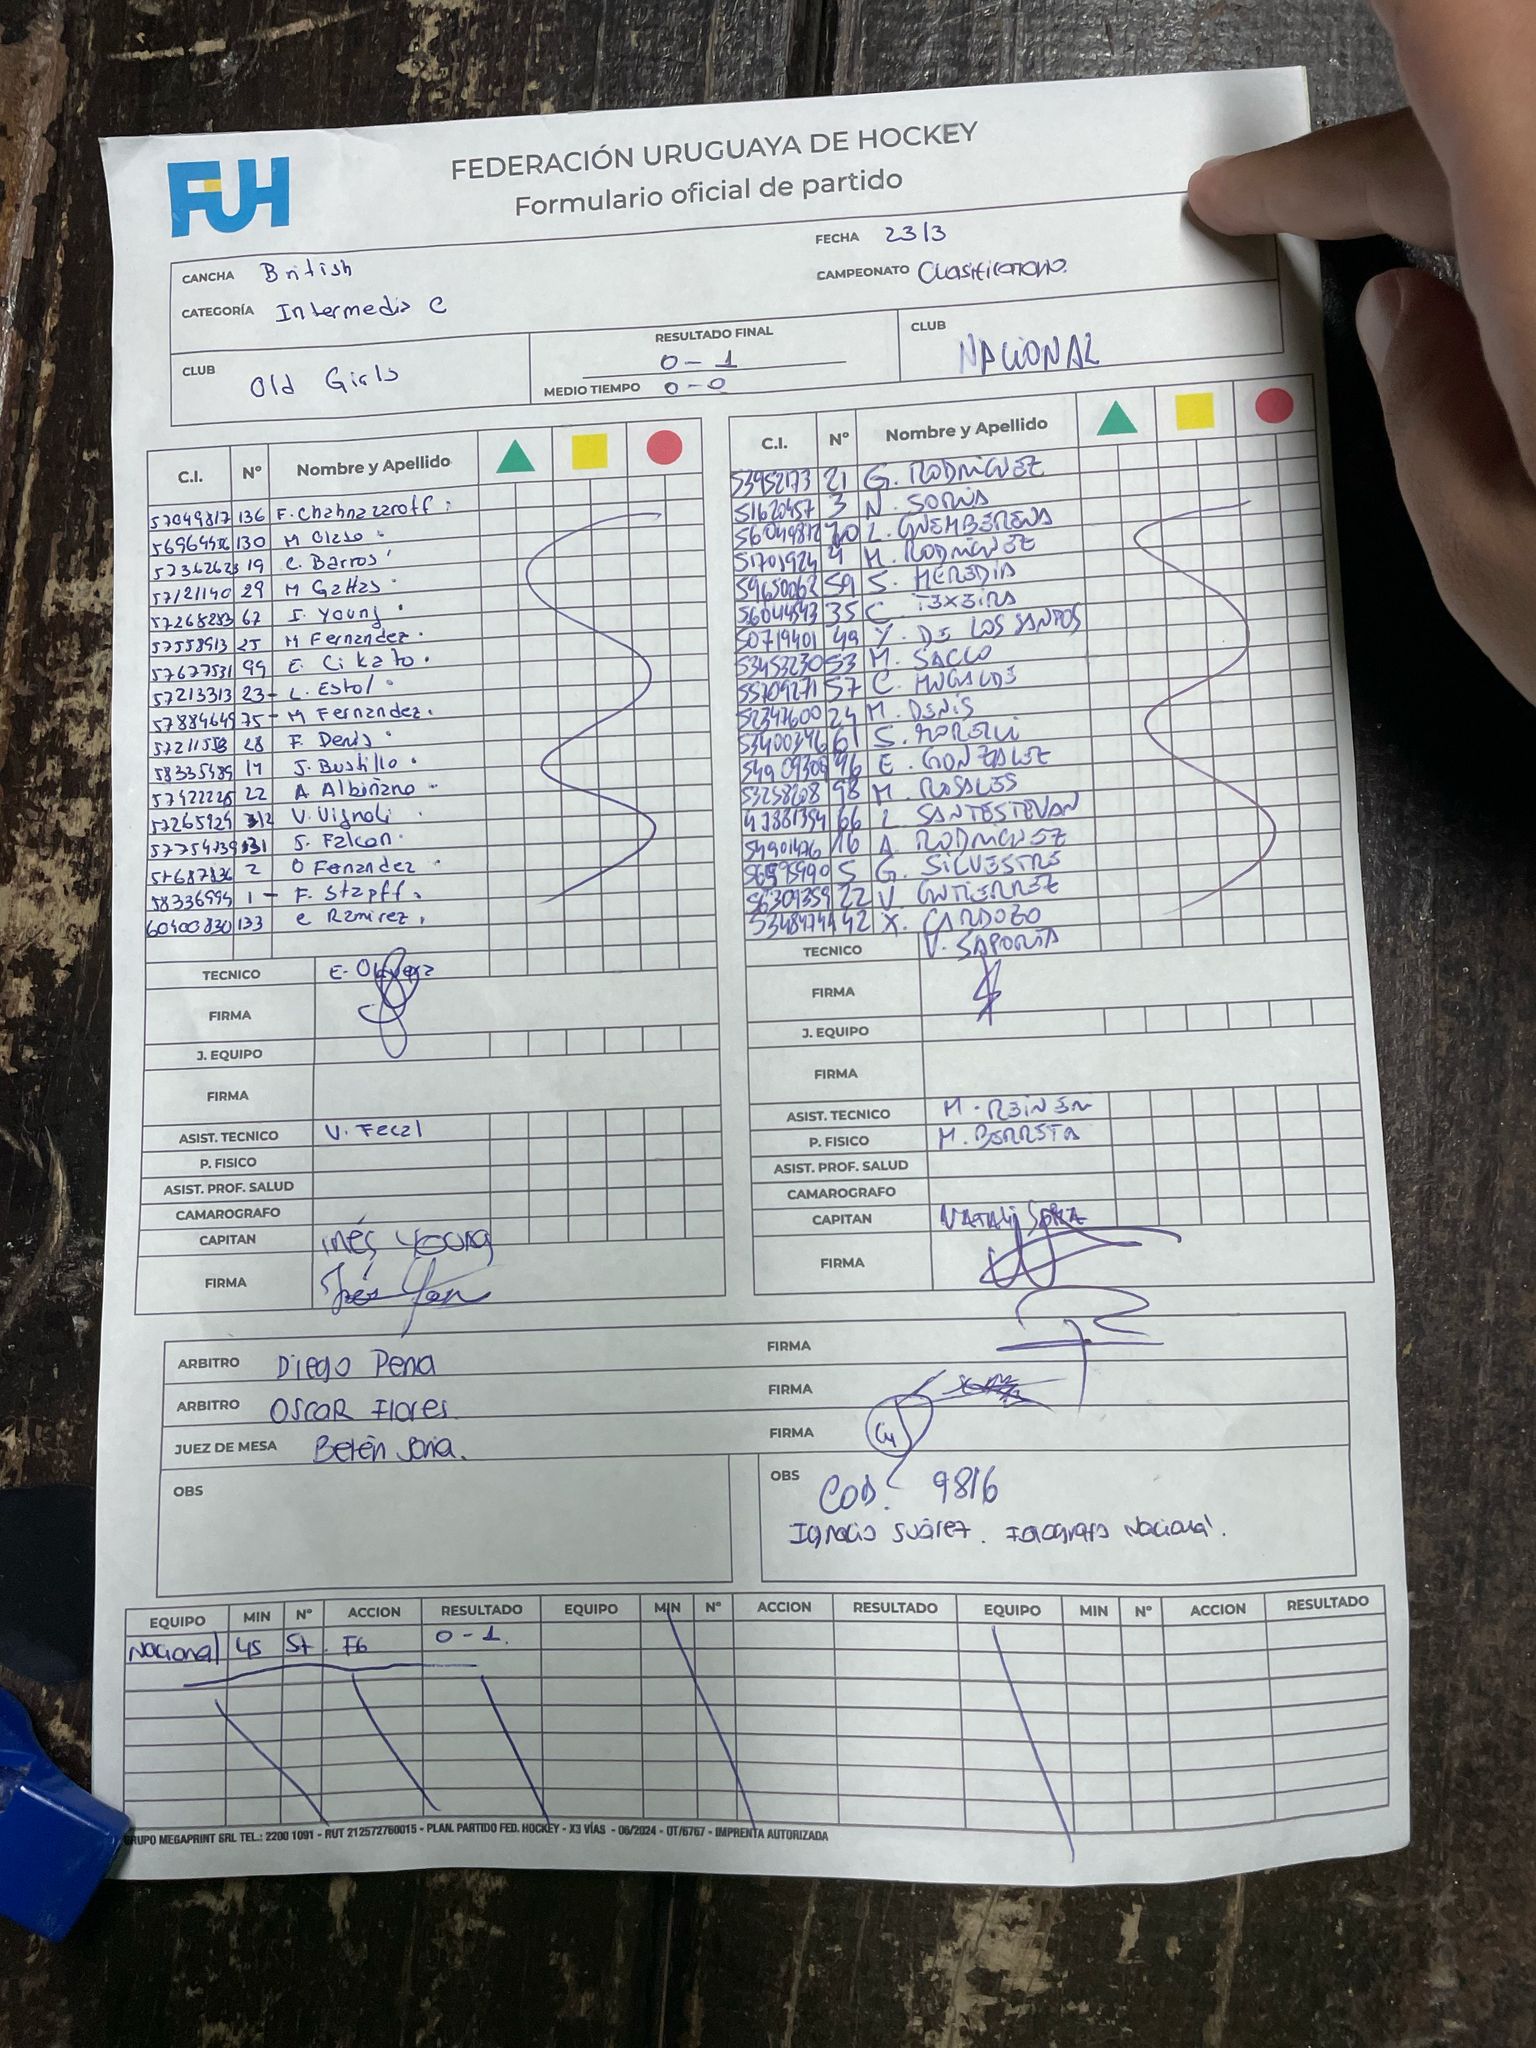 FUH
FEDERACIÓN URUGUAYA DE HOCKEY
Formulario oficial de partido
CANCHA British
FECHA 23/3
CATEGORÍA Intermedia C
CAMPEONATO Clasificatorio.
CLUB Old Girls
RESULTADO FINAL 0-1
MEDIO TIEMPO 0-0
CLUB NACIONAL
C.I. Nº Nombre y Apellido
57049817 136 F. Chahnazaroff
130 M Olaso
19 C. Barros
57121140 29 M Gattas
57268283 67 I. Young
57558913 25 M Fernandez
57627531 99 E. Cikato
57213313 23 L. Estol
57884649 75 M Fernandez
28 F. Denis
58335489 17 J. Bustillo
57422226 22 A Albiñano
V. Vignoli
131 S. Falcon
2 O Fernandez
58336994 1 F. Stapff
60400830 133 C Ramirez
TECNICO E. Olivera
FIRMA
J. EQUIPO
FIRMA
ASIST. TECNICO V.
P. FISICO
ASIST. PROF. SALUD
CAMAROGRAFO
CAPITAN Inés Young
FIRMA
C.I. Nº Nombre y Apellido
53952173 21 G. RODRIGUEZ
51620457 3 N. SORIA
L. GUEMBERENA
51701924 4 M. RODRIGUEZ
59650062 59 S. HEREDIA
56044543 35 C. TEXEIRA
50719401 49 Y. DE LOS SANTOS
53453230 53 M. SACCO
55709271 57 C. MUGALDE
52347600 24 M. DENIS
53400346 61 S. MORELLI
96 E. GONZALEZ
98 M. ROSALES
66 SANTESTEVAN
16 A. RODRIGUEZ
5 G. SILVESTRE
56309359 22 V. GUTIERREZ
42 X. CARDOZO
TECNICO V. SAPORITA
FIRMA
J. EQUIPO
FIRMA
ASIST. TECNICO M.
P. FISICO M. BERRETA
ASIST. PROF. SALUD
CAMAROGRAFO
CAPITAN
FIRMA
ARBITRO Diego Pena FIRMA
ARBITRO OSCAR Flores. FIRMA
JUEZ DE MESA Belén Soria. FIRMA
OBS
OBS COD. 9816
Ignacio Suárez. Fotógrafo Nacional.
EQUIPO MIN Nº ACCION RESULTADO EQUIPO MIN Nº ACCION RESULTADO EQUIPO MIN Nº ACCION RESULTADO
Nacional 45 57. FG 0-1.
GRUPO MEGAPRINT SRL TEL.: 2200 1091 - RUT 212572760015 - PLAN. PARTIDO FED. HOCKEY - X3 VÍAS - 06/2024 - OT/6767 - IMPRENTA AUTORIZADA